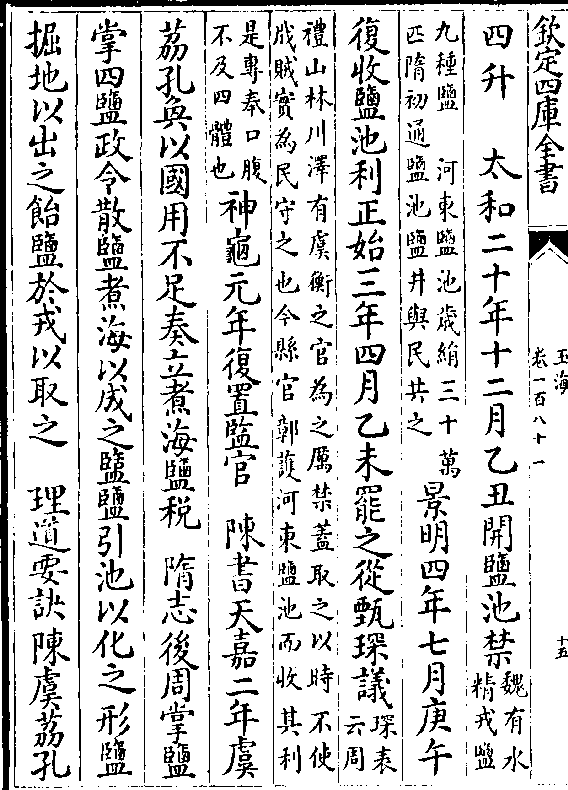 欽定四庫全書
玉海
卷一百八十一
十五
四升　太和二十年十二月乙丑開鹽池禁魏有水精戎鹽
九種鹽　河東鹽池歲絹三十萬匹隋初通鹽池鹽井與民共之景明四年七月庚午
復收鹽池利正始三年四月乙未罷之從甄琛議琛表云周
禮山林川澤有虞衡之官為之厲禁蓋取之以時不使戕賊實為民守之也今縣官鄣護河東鹽池而收其利
是專奉口腹不及四體也神龜元年復置監官　陳書天嘉二年虞
荔孔奐以國用不足奏立煮海鹽税　隋志後周掌鹽
掌四鹽政令散鹽煮海以成之盬鹽引池以化之形鹽
掘地以出之飴鹽於戎以取之　理道要訣陳虞荔孔